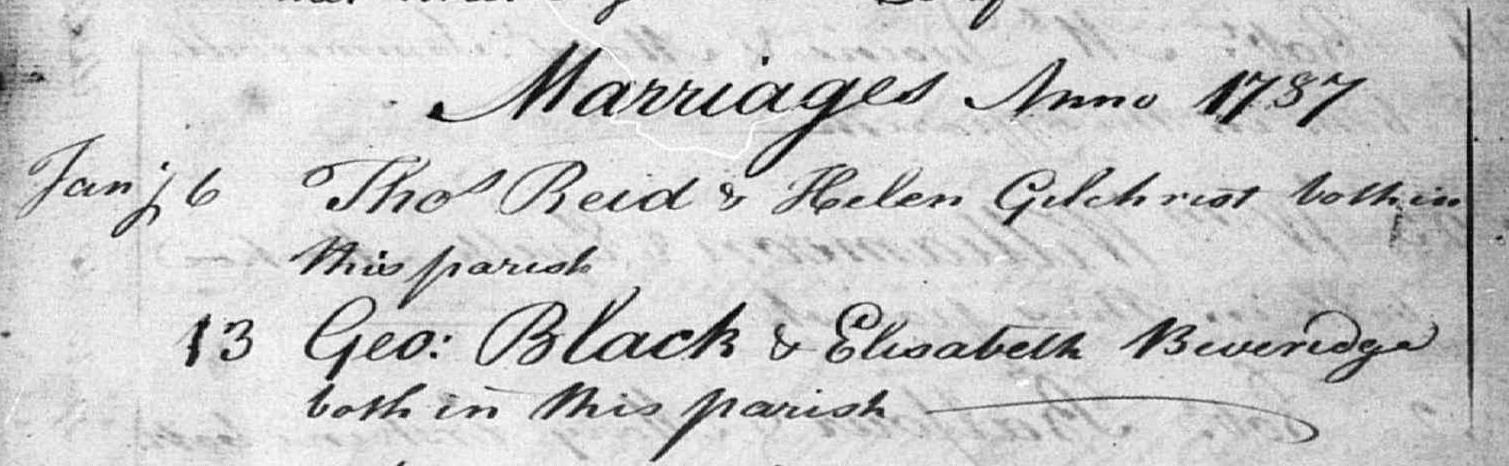 Marriages Anno 1787
Jany 6 Thos Reid & Helen Gilchrist both in
this parish
13 Geo: Black & Elisabeth Beveridge
both in this parish